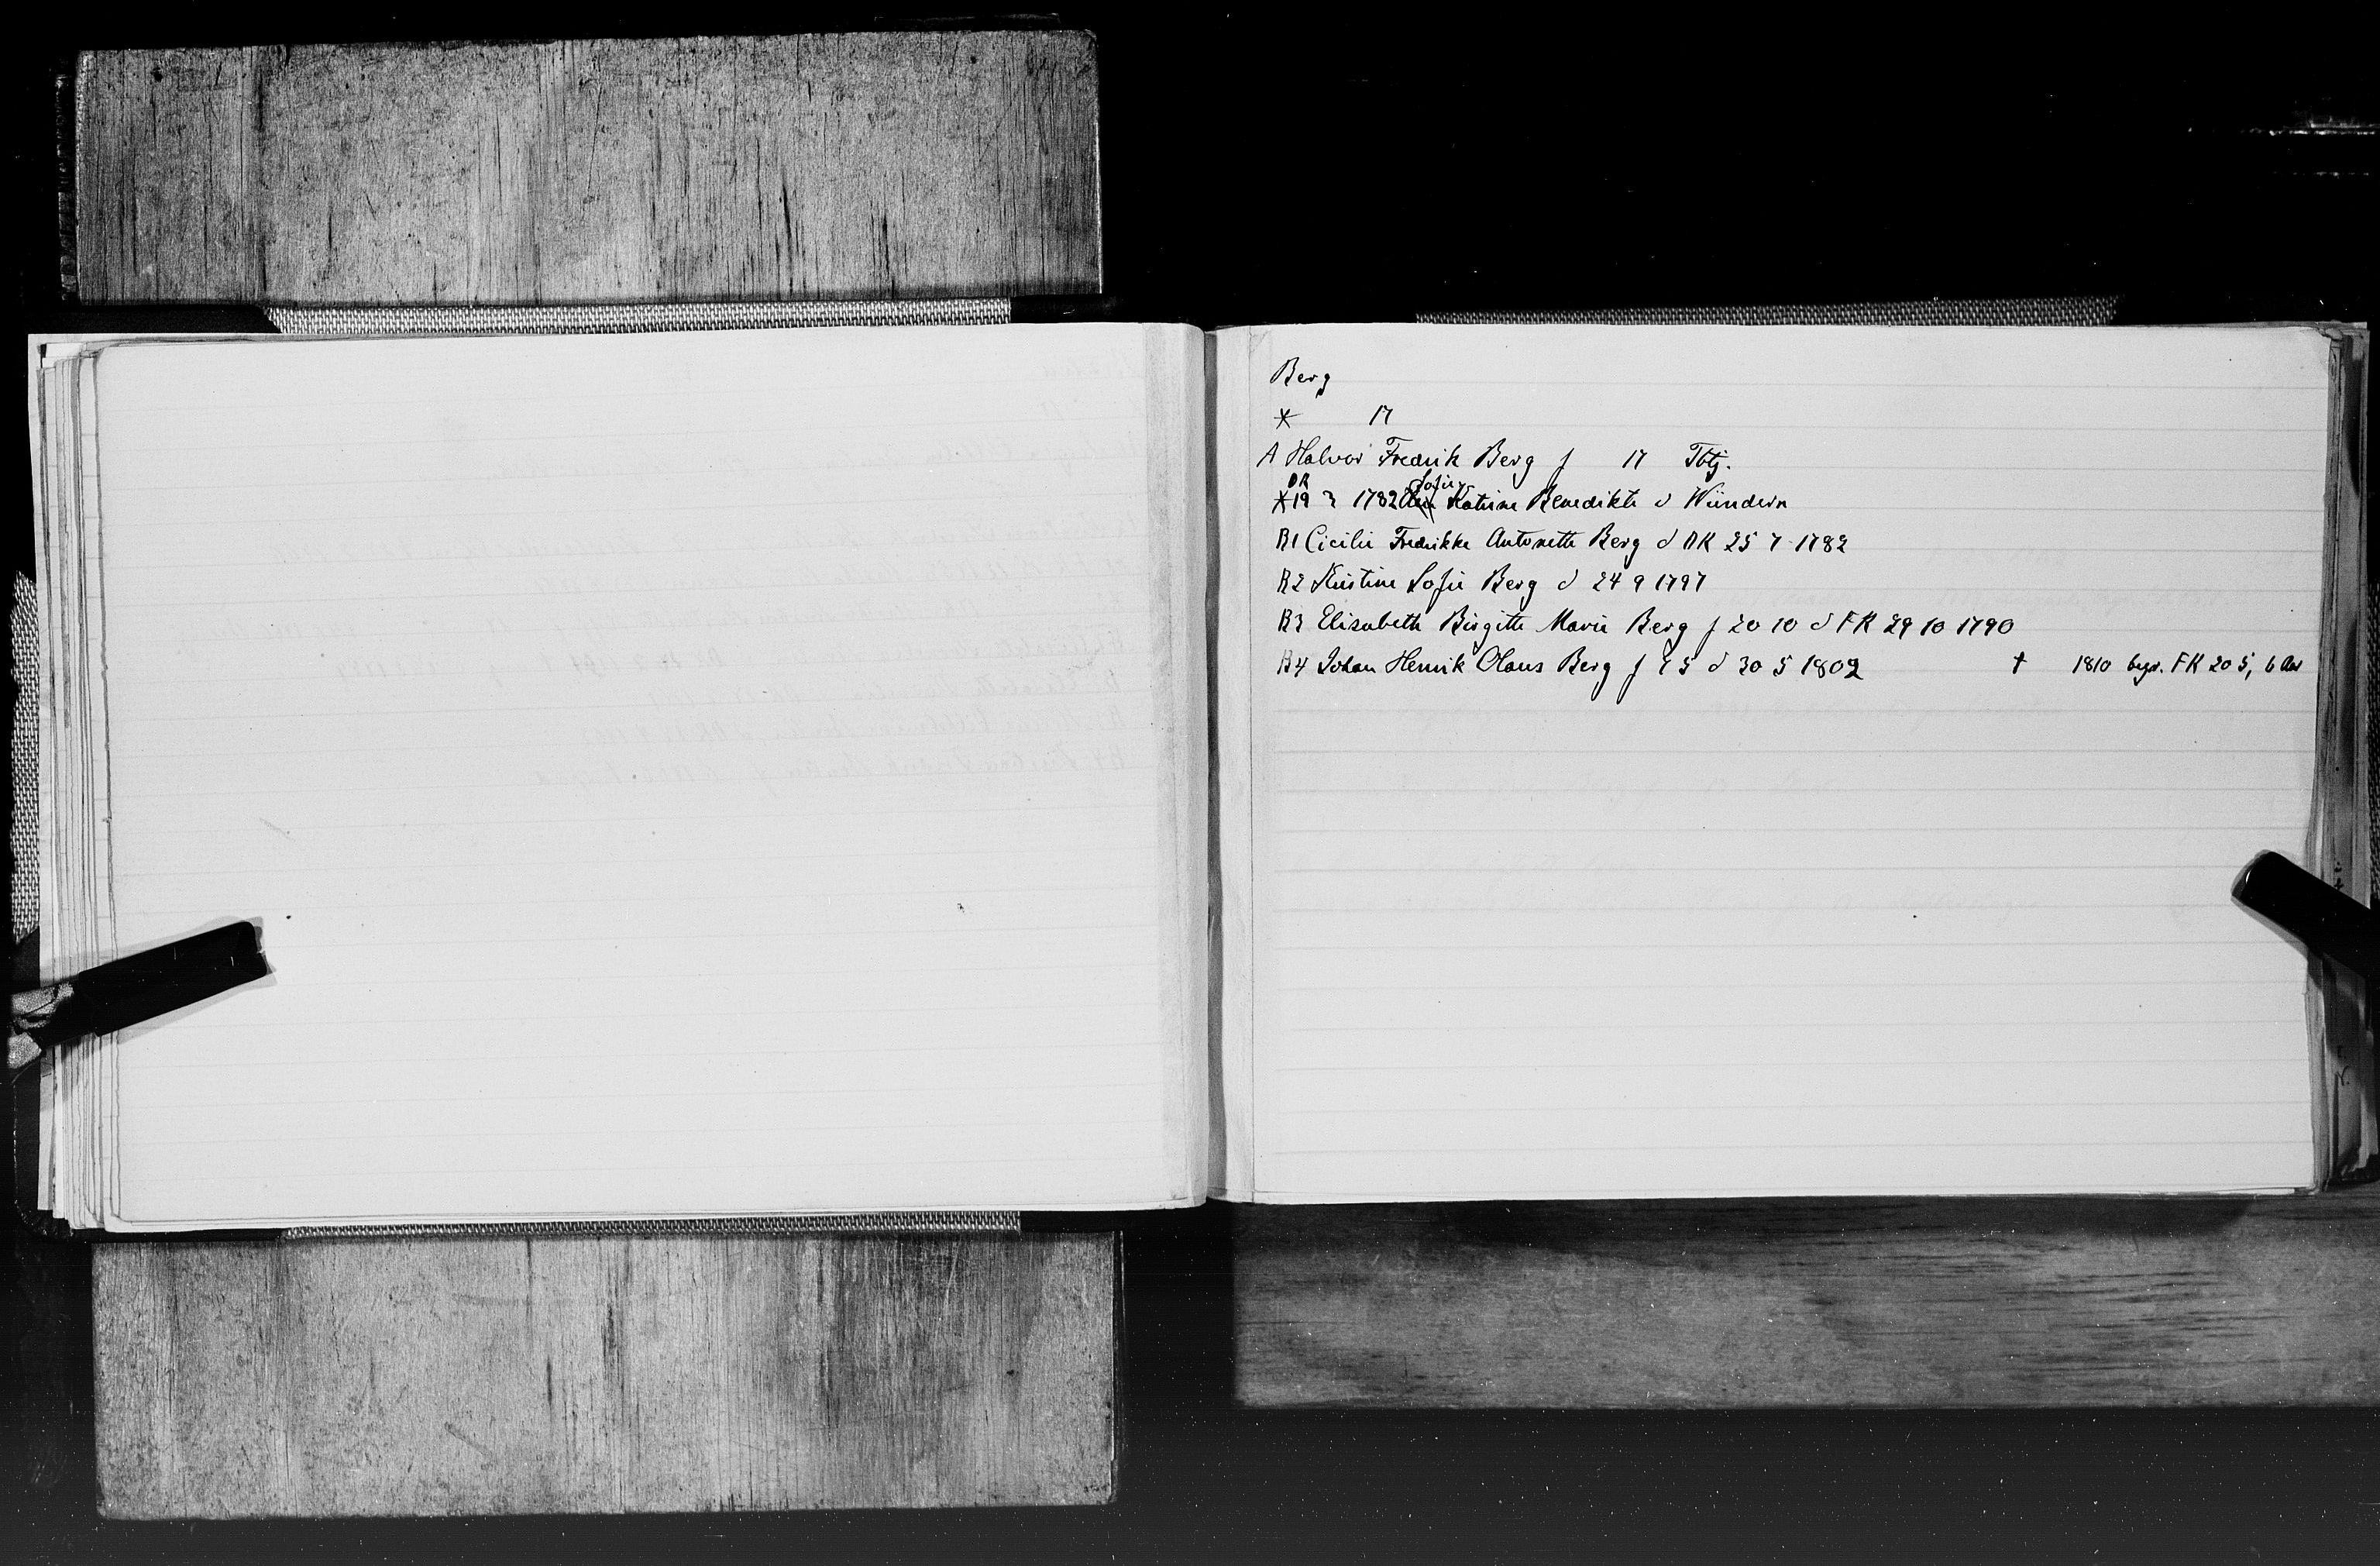 Berg
* 17
A Halvor Fredrik Berg f 17 Tbtj.
DK Sofie
*19 3 1782 Katrine Benedikte v Wündern
B1 Cicilie Fredrikke Antonette Berg d DK 25 7 1782
B2 Kristine Sofie Berg d 24 9 1797
B3 Elisabeth Birgitte Marie Berg f 20 10 d FK 29 10 1790
B4 Johan Henrik Olaus Berg f 15 d 30 5 1802 † 1810 begr. FK 20 5, 6 Aar